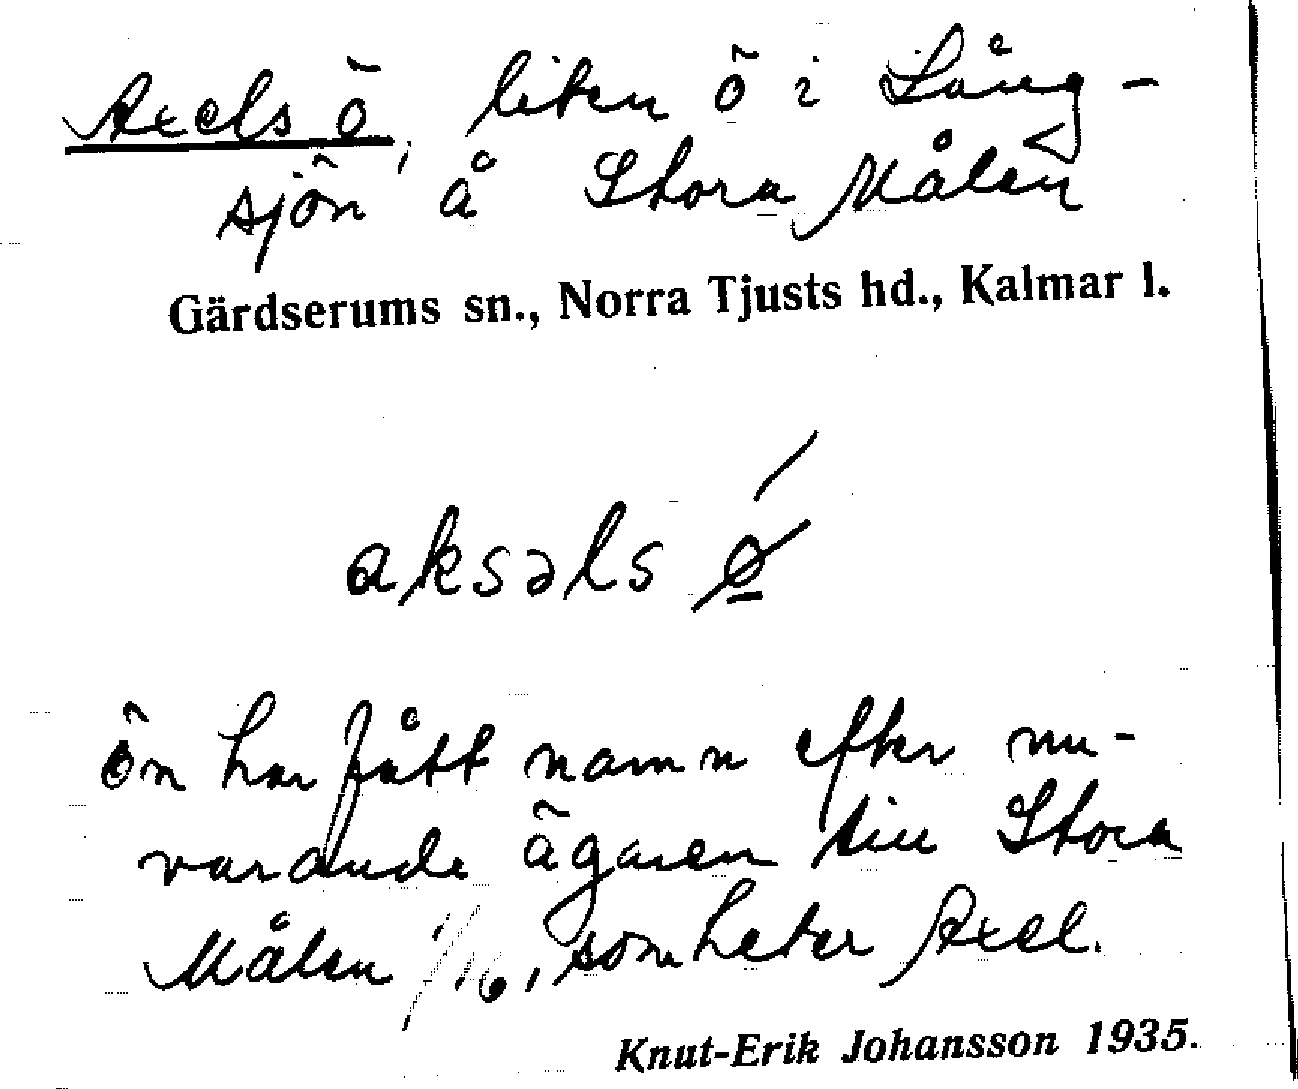 Axels ö, liten ö i Lång-
sjön å Stora Målen
Gärdserums sn., Norra Tjusts hd., Kalmar l.
aksəls ǿ̲
ön har fått namn efter nu-
varande ägaren till Stora
Målen 1/16, som heter Axel.
Knut-Erik Johansson 1935.